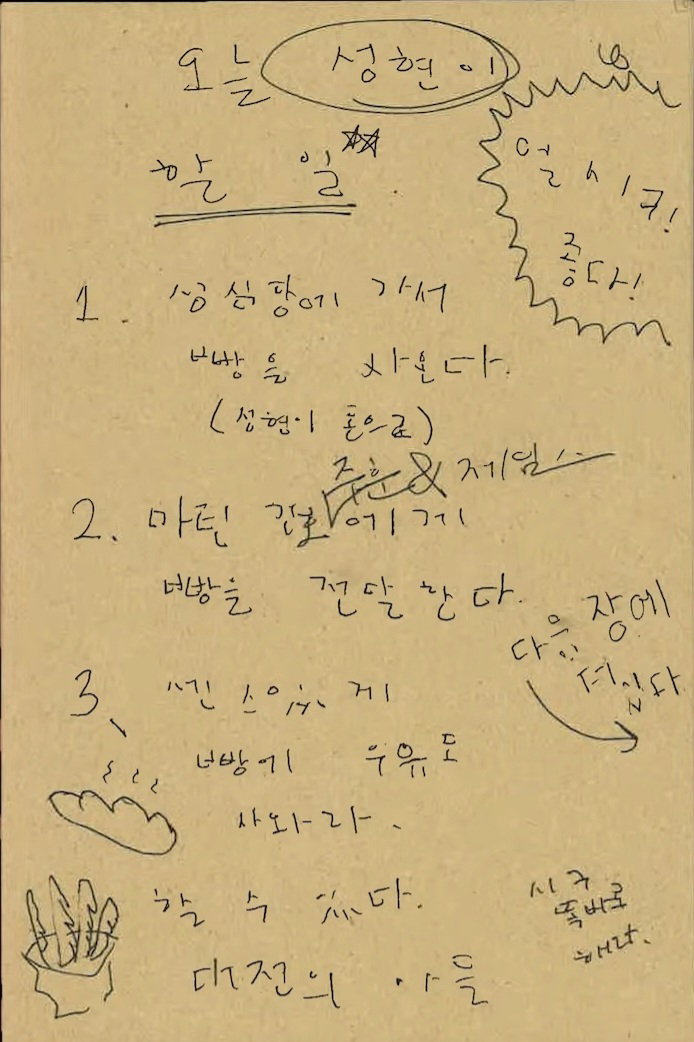 오늘 성현이
할 일
얼시구!
좋다!
1. 성심당에 가서
빵을 사온다.
(성현이 돈으로)
주훈 & 제임스
2. 마틴 건호에게
빵을 전달한다.
다음 장에
더 있다
3. 센스있게
빵에 우유도
사와라.
할 수 있다.
대전의 아들
시구
똑바로
해라.